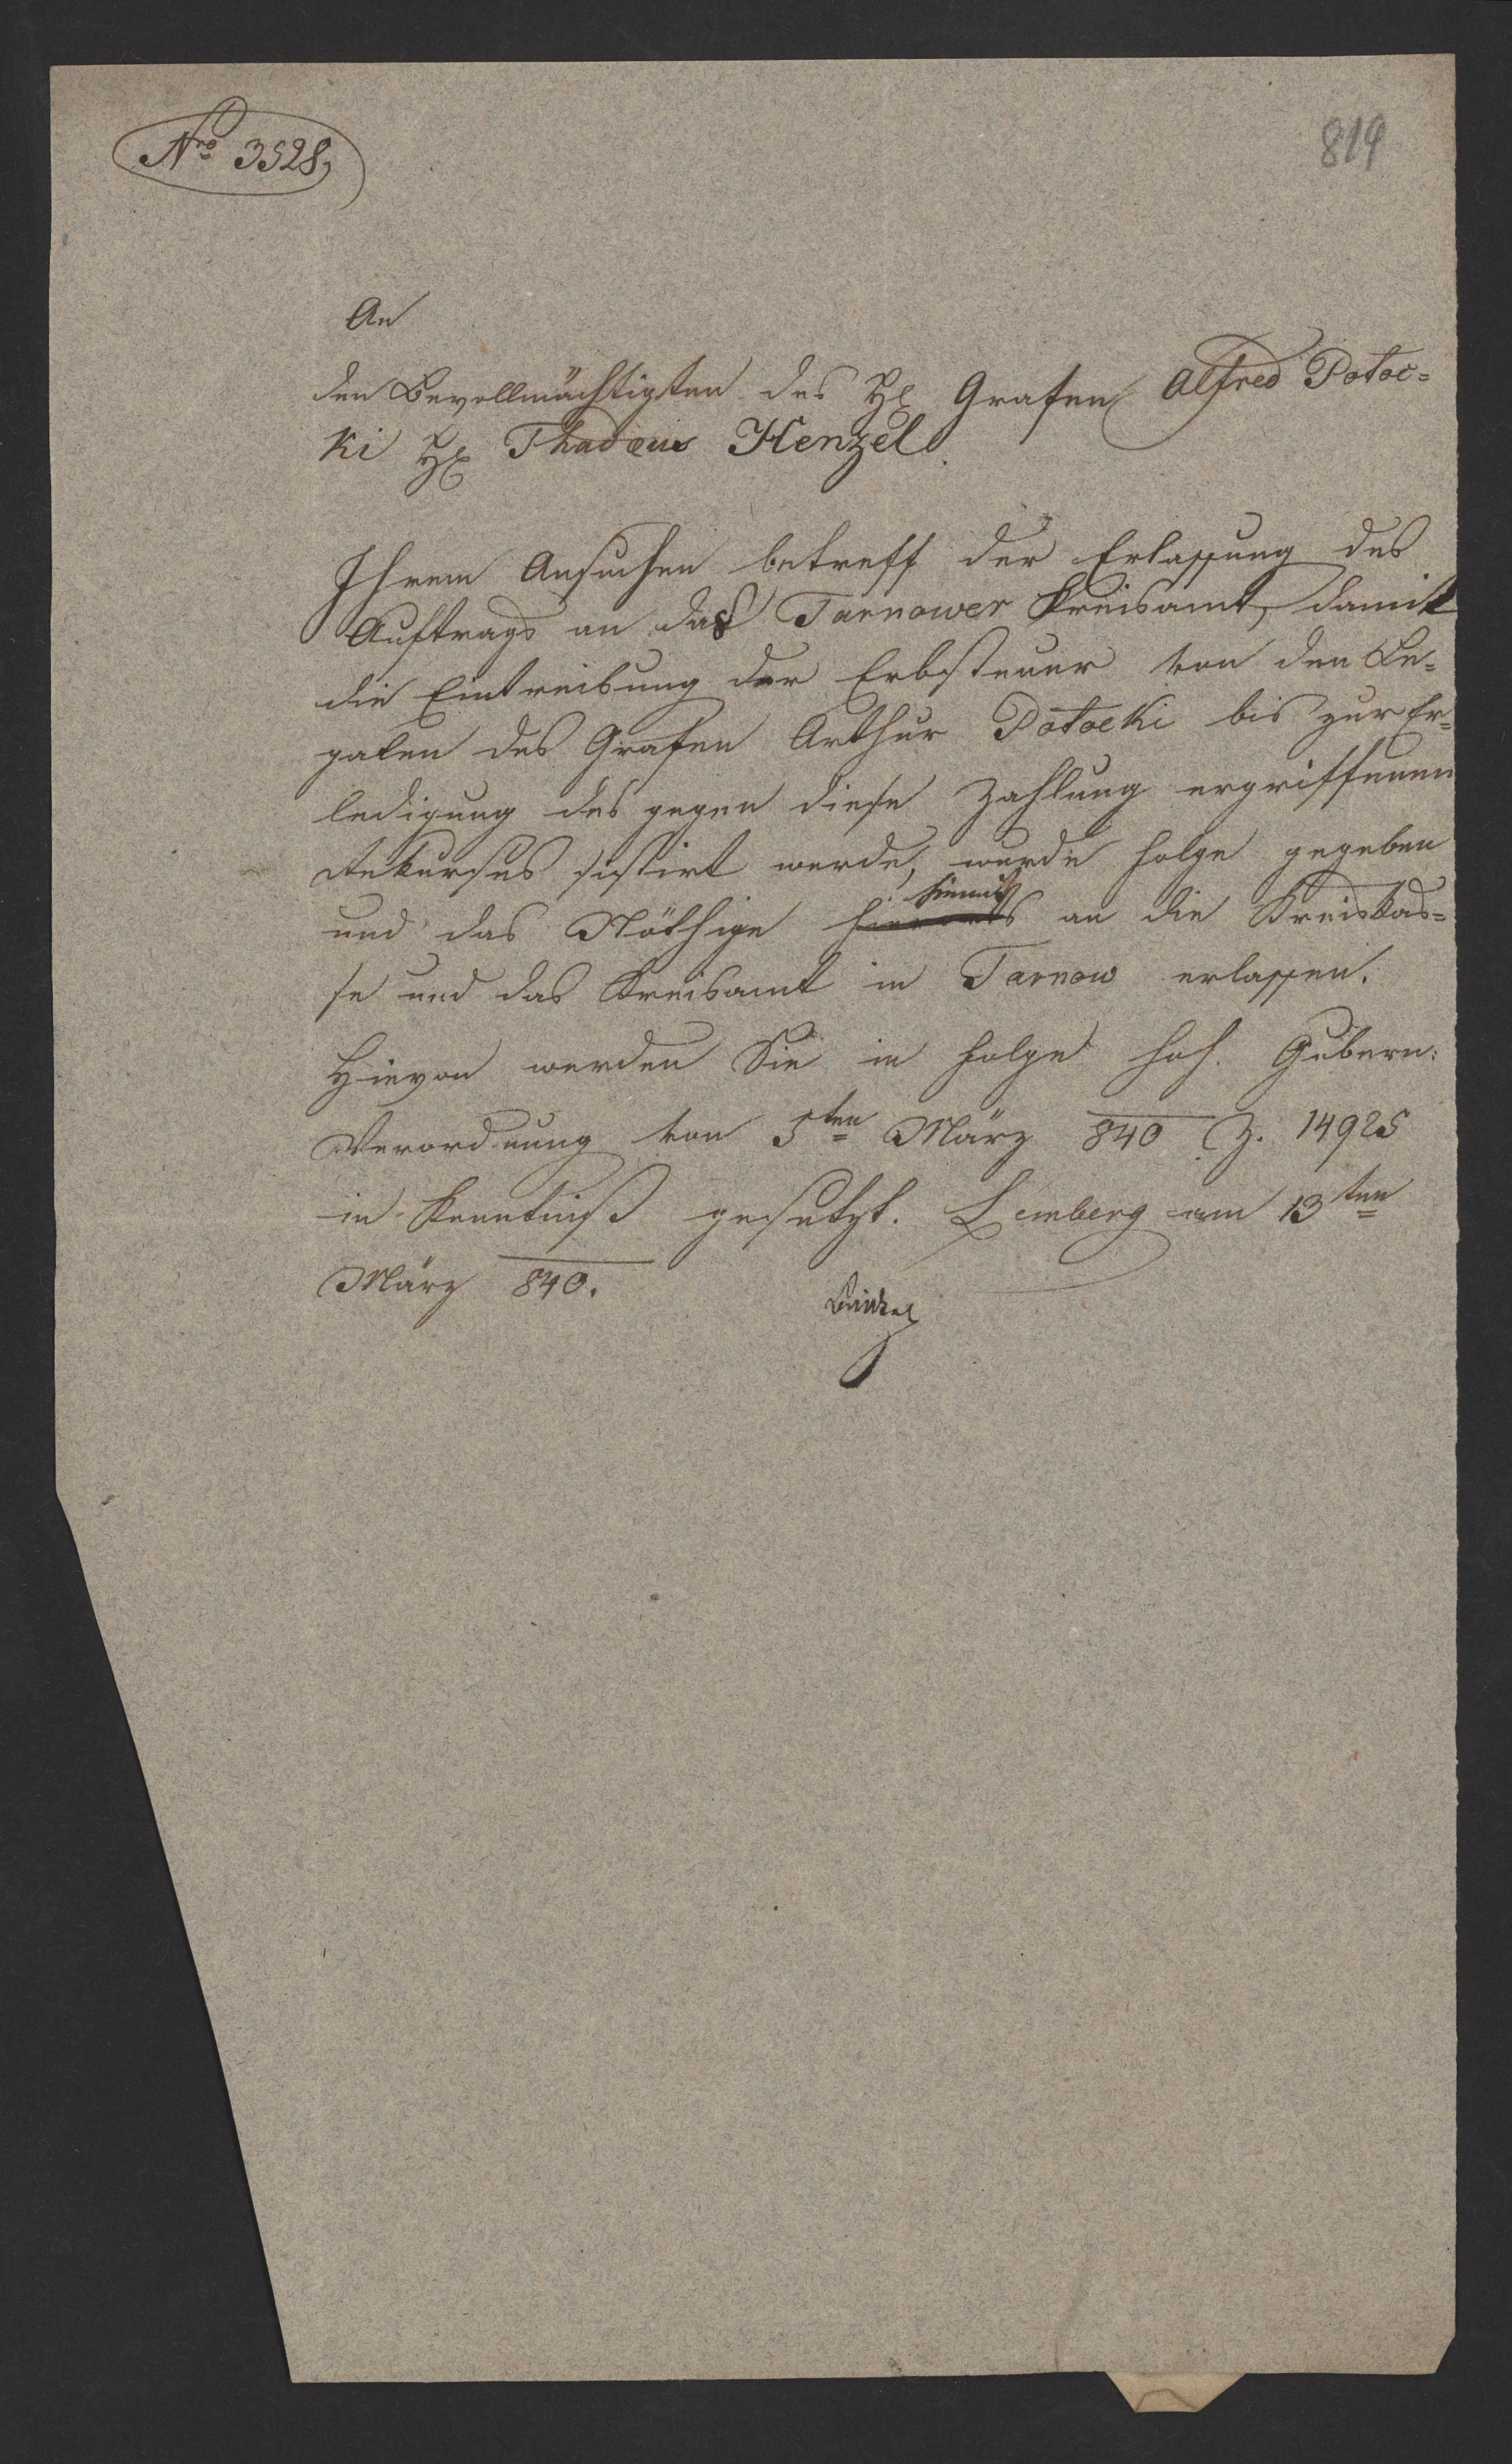 Nro 3528,
819
An
den Bevollmächtigten des H Grafen Alfred Potoc=
ki H Thadeus Henzel.
Ihrem Ansuchen betreff der Erlassung des
Auftrags an das Tarnower Kreisamt, damit
die Eintreibung der Erbsteuer von den Le=
gaten des Grafen Arthur Potocki bis zur Er=
ledigung des gegen diese Zahlung ergriffenen
Rekurses sistirt werde, wurde folge gegeben
und das Nöthige hierorts an die Kreiskas=
se und das Kreisamt in Tarnow erlassen.
Hievon werden Sie in Folge hoh. Gubern:
Verordnung von 5ten März 840 Z. 14925
in Kenntniß gesetzt. Lemberg am 13ten
März 840.